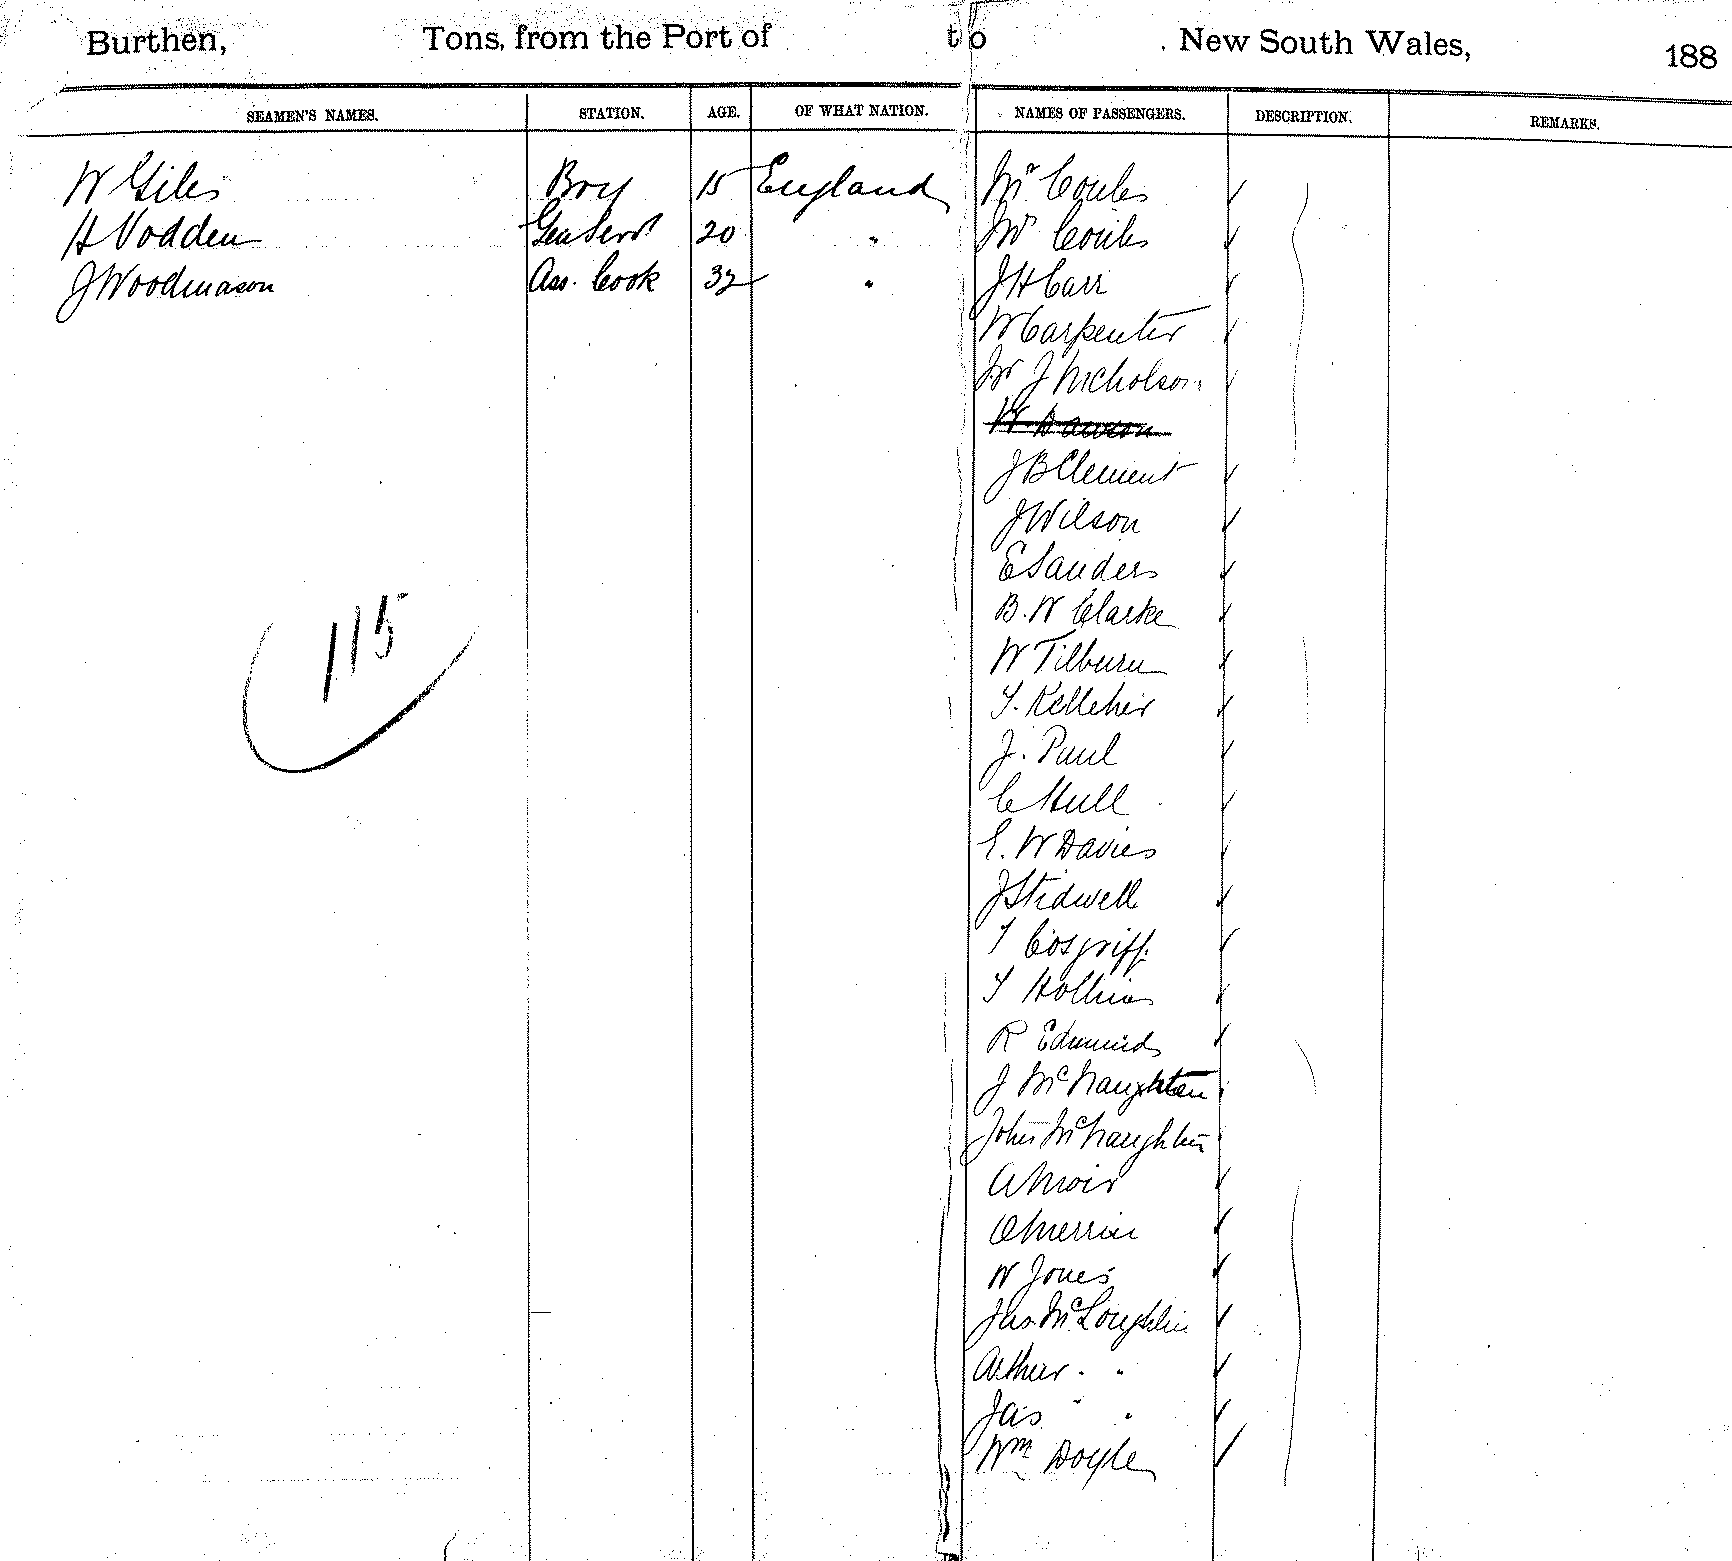 Burthen, Tons, from the Port of to New South Wales, 188
SEAMEN'S NAMES. STATION. AGE. OF WHAT NATION. NAMES OF PASSENGERS. DESCRIPTION. REMARKS.
W Giles Boy 15 England Mr Coules
H Vodden Gen Servt 20 " Mr Coules
J Woodmason Ass. Cook 32 " J H Carr
W Carpenter
Mr J Nicholson
W. Dawson
J B Clement
J Wilson
E Sanders
B. W Clarke
W Tilburn
T. Kelleher
J. Paul
C Hull
E. W Davies
J Stidwell
T Cosgriff
T Hollins
R Edmunds
J McNaughton
John McNaughton
A Muir
W Jones
Jas. McLoughlin
Arthur " "
Jas " "
Wm Doyle
115